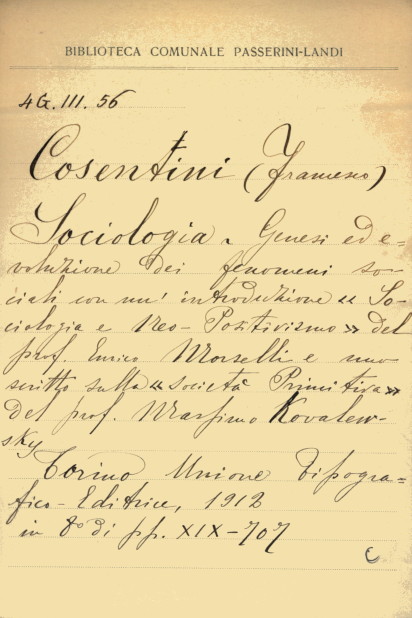 BIBLIOTECA COMUNALE PASSERINI-LANDI
4G. III. 56
Cosentini (Francesco)
Sociologia ~ Genesi ed e-
voluzione dei fenomeni so-
ciali con un' introduzione « So-
ciologia e Neo-Positivismo » del
prof. Enrico Morselli e uno
scritto sulla « Società Primitiva »
del prof. Massimo Kovalew-
sky
Torino Unione Tipogra-
fico-Editrice, 1912
in 8º di pp. XIX-707
C